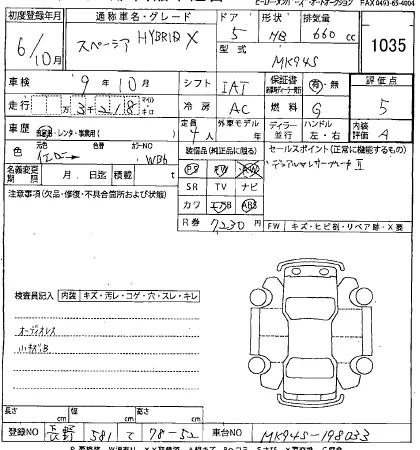 FAX 0493-65-4004
初度登録年月 通称車名・グレード ドア 形状 排気量
6/10月 スペーシア HYBRID X 5 HB 660 cc 1035
型式 MK94S
車検 9年10月 シフト IAT 保証書 有・無 評価点
走行 万3千218 マイル キロ 冷房 AC 燃料 G 5
車歴 自家用・レンタ・事業用( ) 定員 4人 外車モデル ディーラー 並行 ハンドル 左・右 内装評価 A
色 元色 色番 カラーNO WB6 装備品(純正品に限る) セールスポイント(正常に機能するもの)
PS PW AW デュアルセンサーブレーキⅡ
名義変更期限 月 日迄 積載 t SR TV ナビ
注意事項(欠品・修復・不具合箇所および状態) カワ エアB ABS
R券 7230円 FW キズ・ヒビ割・リペア跡・X要
検査員記入 内装 キズ・汚レ・コゲ・穴・スレ・キレ
オーディオレス
小キズB
長さ cm 幅 cm 高さ cm
登録NO 長野 581 て 78-52 車台NO MK94S-198033